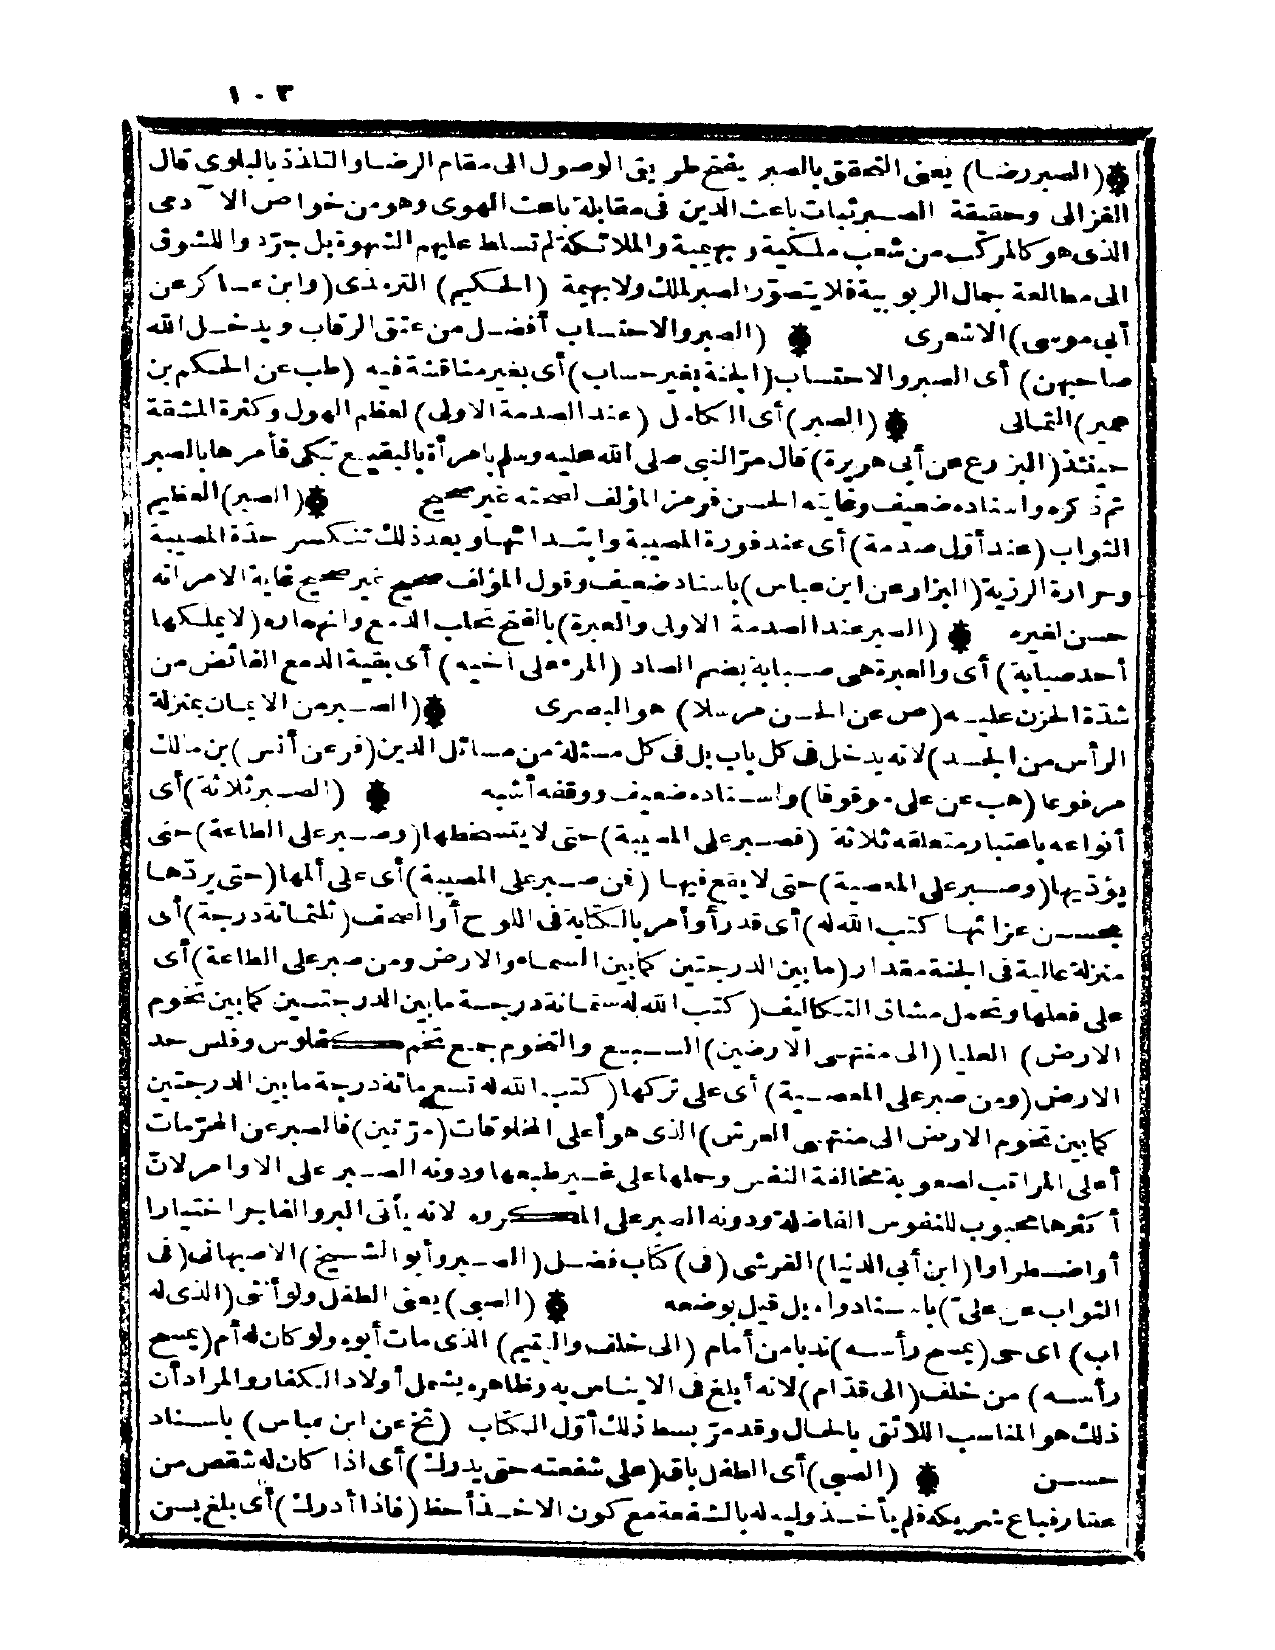 ١٠٣
(الصبر رضا) يعنى التحقق بالصبر يفتح طريق الوصول الى مقام الرضا والتلذذ بالبلوى قال
الغزالى وحقيقة الصبر ثبات باعث الدين فى مقابلة باعث الهوى وهو من خواص الآدمى
الذى هو كالمركب من شعب ملكية وبهيمية والملائكة لم تسلط عليهم الشهوة بل جرّدوا للشوق
الى مطالعة جمال الربوبية فلا يتصوّر الصبر لملك ولا بهيمة (الحكيم) الترمذى (وابن عساكر عن
أبى موسى) الاشعرى (الصبر والاحتساب أفضل من عتق الرقاب ويدخل الله
صاحبهن) أى الصبر والاحتساب (الجنة بغير حساب) أى بغير مناقشة فيه (طب عن الحكم بن
عمير) الثمالى (الصبر) أى الكامل (عند الصدمة الاولى) لعظم الهول وكثرة المشقة
حينئذ (البزار ع عن أبى هريرة) قال مرّ النبى صلى الله عليه وسلم بامرأة بالبقيع تبكى فأمرها بالصبر
ثم ذكره واسناده ضعيف وغايته الحسن فرمز المؤلف لصحته غير صحيح (الصبر) العظيم
الثواب (عند أوّل صدمة) أى عند فورة المصيبة وابتدائها وبعد ذلك تنكسر حدّة المصيبة
وحرارة الرزية (البزار عن ابن عباس) باسناد ضعيف وقول المؤلف صحيح غير صحيح غاية الامر انه
حسن لغيره (الصبر عند الصدمة الاولى والعبرة) بالفتح تحلب الدمع وانهماره (لا يملكها
أحد صبابة) أى والعبرة هى صبابة بضم الصاد (المرء على أخيه) أى بقية الدمع الفائض من
شدّة الحزن عليه (ص عن الحسن مرسلا) هو البصرى (الصبر من الايمان بمنزلة
الرأس من الجسد) لانه يدخل فى كل باب بل فى كل مسئلة من مسائل الدين (فر عن أنس) بن مالك
مرفوعا (هب عن على موقوفا) واسناده ضعيف ووقفه أشبه (الصبر ثلاثة) أى
أنواعه باعتبار متعلقه ثلاثة (فصبر على المصيبة) حتى لا يتسخطها (وصبر على الطاعة) حتى
يؤديها (وصبر على المعصية) حتى لا يقع فيها (فمن صبر على المصيبة) أى على ألمها (حتى يردّها
بحسن عزائها كتب الله له) أى قدر أو أمر بالكتابة فى اللوح أو الصحف (ثلثمائة درجة) أى
منزلة عالية فى الجنة مقدار (ما بين الدرجتين كما بين السماء والارض ومن صبر على الطاعة) أى
على فعلها وتحمل مشاق التكاليف (كتب الله له ستمائة درجة ما بين الدرجتين كما بين تخوم
الارض) العليا (الى منتهى الارضين) السبع والتخوم جمع تخم كفلوس وفلس حد
الارض (ومن صبر على المعصية) أى على تركها (كتب الله له تسعمائة درجة ما بين الدرجتين
كما بين تخوم الارض الى منتهى العرش) الذى هو أعلى المخلوقات (مرّتين) فالصبر عن المحرّمات
أعلى المراتب لصعوبة مخالفة النفس وحملها على غير طبعها ودونه الصبر على الاوامر لانّ
أكثرها محبوب للنفوس الفاضلة ودونه الصبر على المكروه لانه يأتى البر والفاجر اختيارا
أو اضطرارا (ابن أبى الدنيا) القرشى (فى) كتاب فضل (الصبر وأبو الشيخ) الاصبهانى (فى
الثواب عن علىّ) باسناد واه بل قيل بوضعه (الصبى) يعنى الطفل ولو أنثى (الذى له
اب) اى حى (يمسح رأسه) ندبا من أمام (الى خلف واليتيم) الذى مات أبوه ولو كان له أم (يمسح
رأسه) من خلف (الى قدّام) لانه أبلغ فى الايناس به وظاهره يشمل أولاد الكفار والمراد أن
ذلك هو المناسب اللائق بالحال وقد مرّ بسط ذلك أوّل الكتاب (تخ عن ابن عباس) باسناد
حسن (الصبى) أى الطفل باق (على شفعته حتى يدرك) أى اذا كان له شقص من
عقار فباع شريكه فلم يأخذ وليه له بالشفعة مع كون الاخذ أحظ (فاذا أدرك) أى بلغ بسن